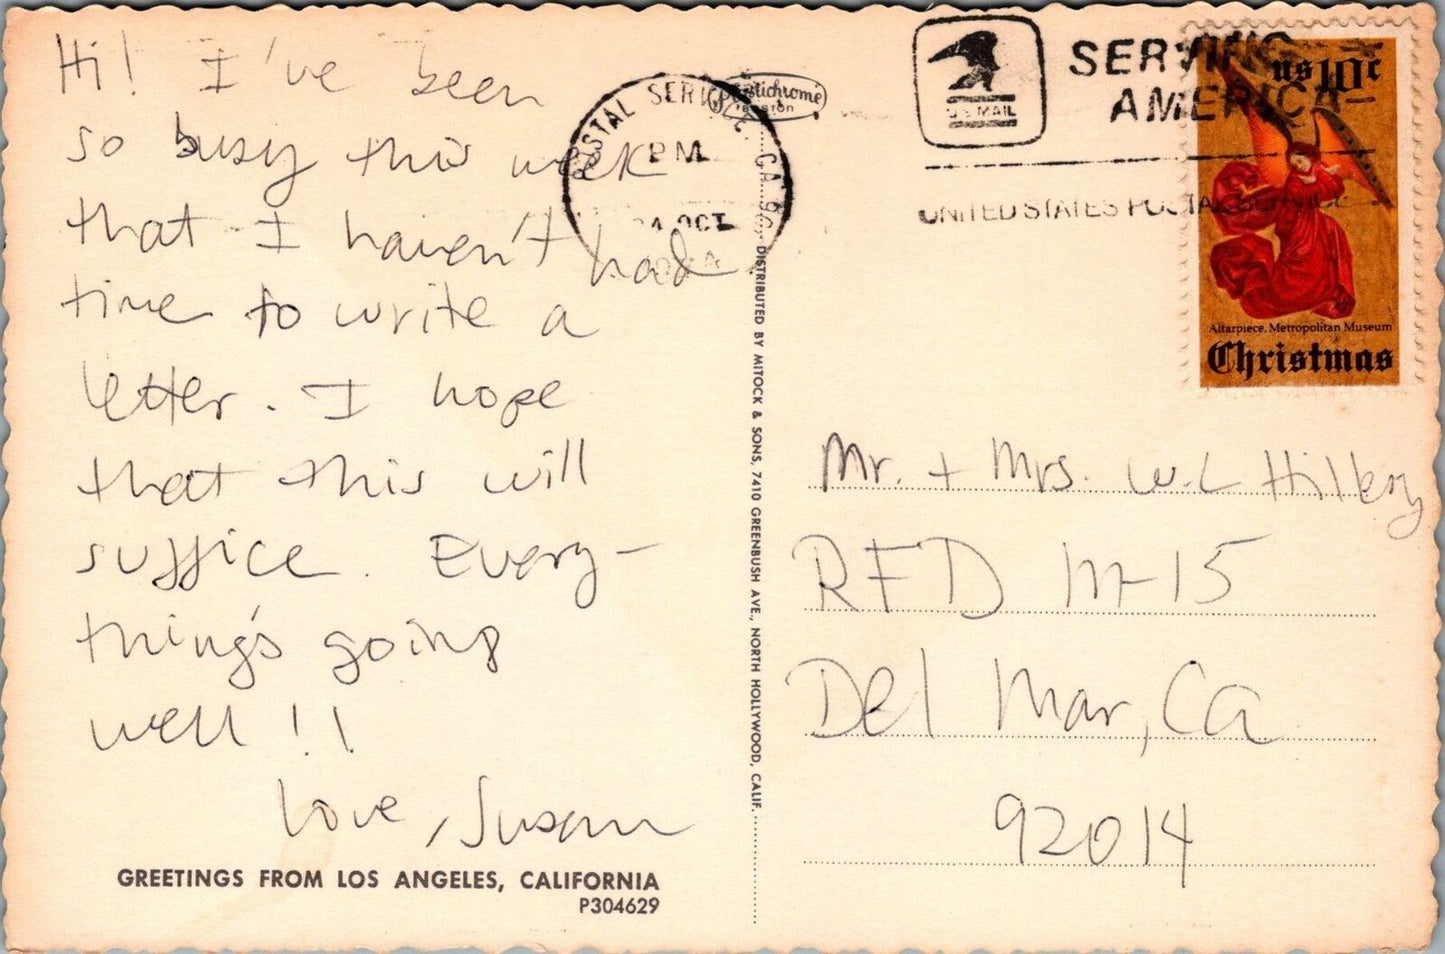 Hi! I've been
so busy this week
that I haven't had
time to write a
letter. I hope
that this will
suffice. Every-
thing's going
well!!
Love, Susan
GREETINGS FROM LOS ANGELES, CALIFORNIA
P304629
POSTAL SERVICE, CA
PM
OCT
Plastichrome
BOSTON
DISTRIBUTED BY MITOCK & SONS, 7410 GREENBUSH AVE., NORTH HOLLYWOOD, CALIF.
U.S. MAIL
SERVING
AMERICA
UNITED STATES POSTAL SERVICE
US 10c
Altarpiece, Metropolitan Museum
Christmas
Mr. + Mrs. W.L Hillery
RFD M-15
Del Mar, Ca
92014